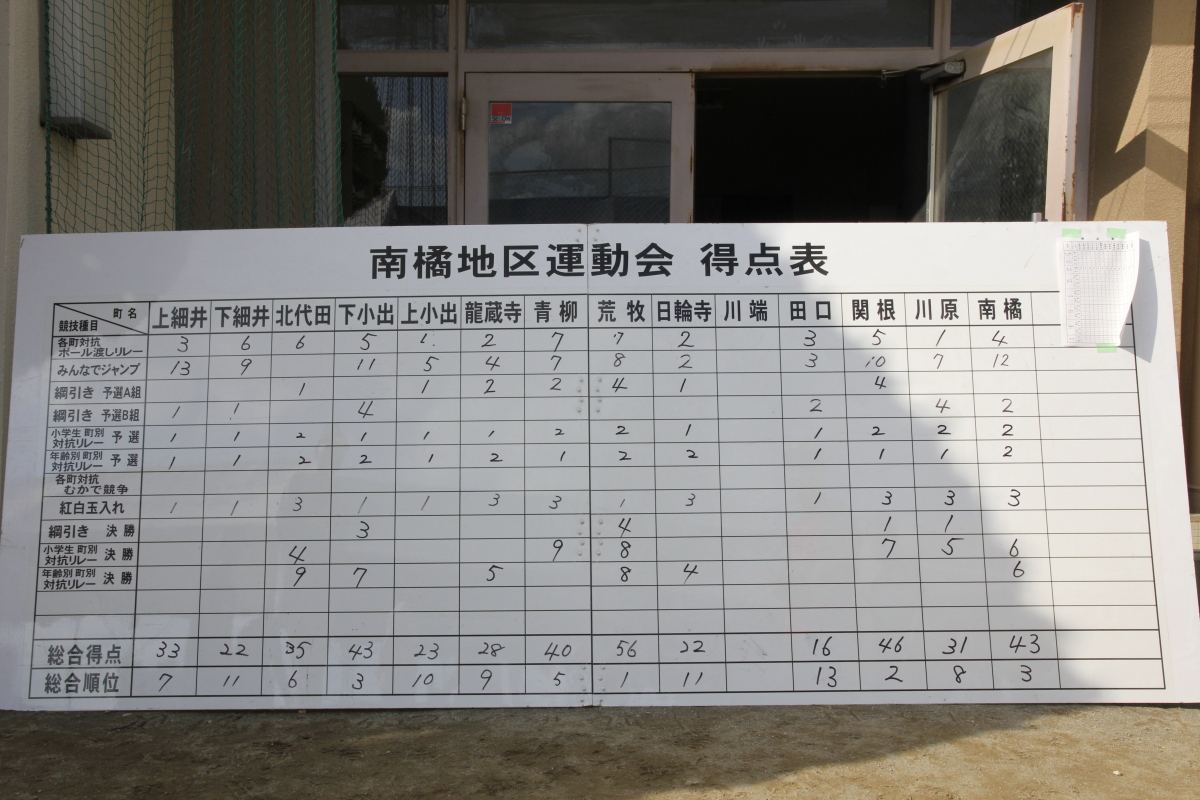 南橘地区運動会 得点表
町名 上細井 下細井 北代田 下小出 上小出 龍蔵寺 青柳 荒牧 日輪寺 川端 田口 関根 川原 南橘
競技種目
各町対抗 ボール渡しリレー 3 6 6 5 1 2 7 7 2 3 5 1 4
みんなでジャンプ 13 9 11 5 4 7 8 2 3 10 7 12
綱引き 予選A組 1 1 2 2 4 1 4
綱引き 予選B組 1 1 4 2 4 2
小学生 町別 対抗リレー 予選 1 1 2 1 1 1 2 2 1 1 2 2 2
年齢別 町別 対抗リレー 予選 1 1 2 2 1 2 1 2 2 1 1 1 2
各町対抗 むかで競争
紅白玉入れ 1 1 3 1 1 3 3 1 3 1 3 3 3
綱引き 決勝 3 4 1 1
小学生 町別 対抗リレー 決勝 4 9 8 7 5 6
年齢別 町別 対抗リレー 決勝 9 7 5 8 4 6
総合得点 33 22 35 43 23 28 40 56 22 16 46 31 43
総合順位 7 11 6 3 10 9 5 1 11 13 2 8 3